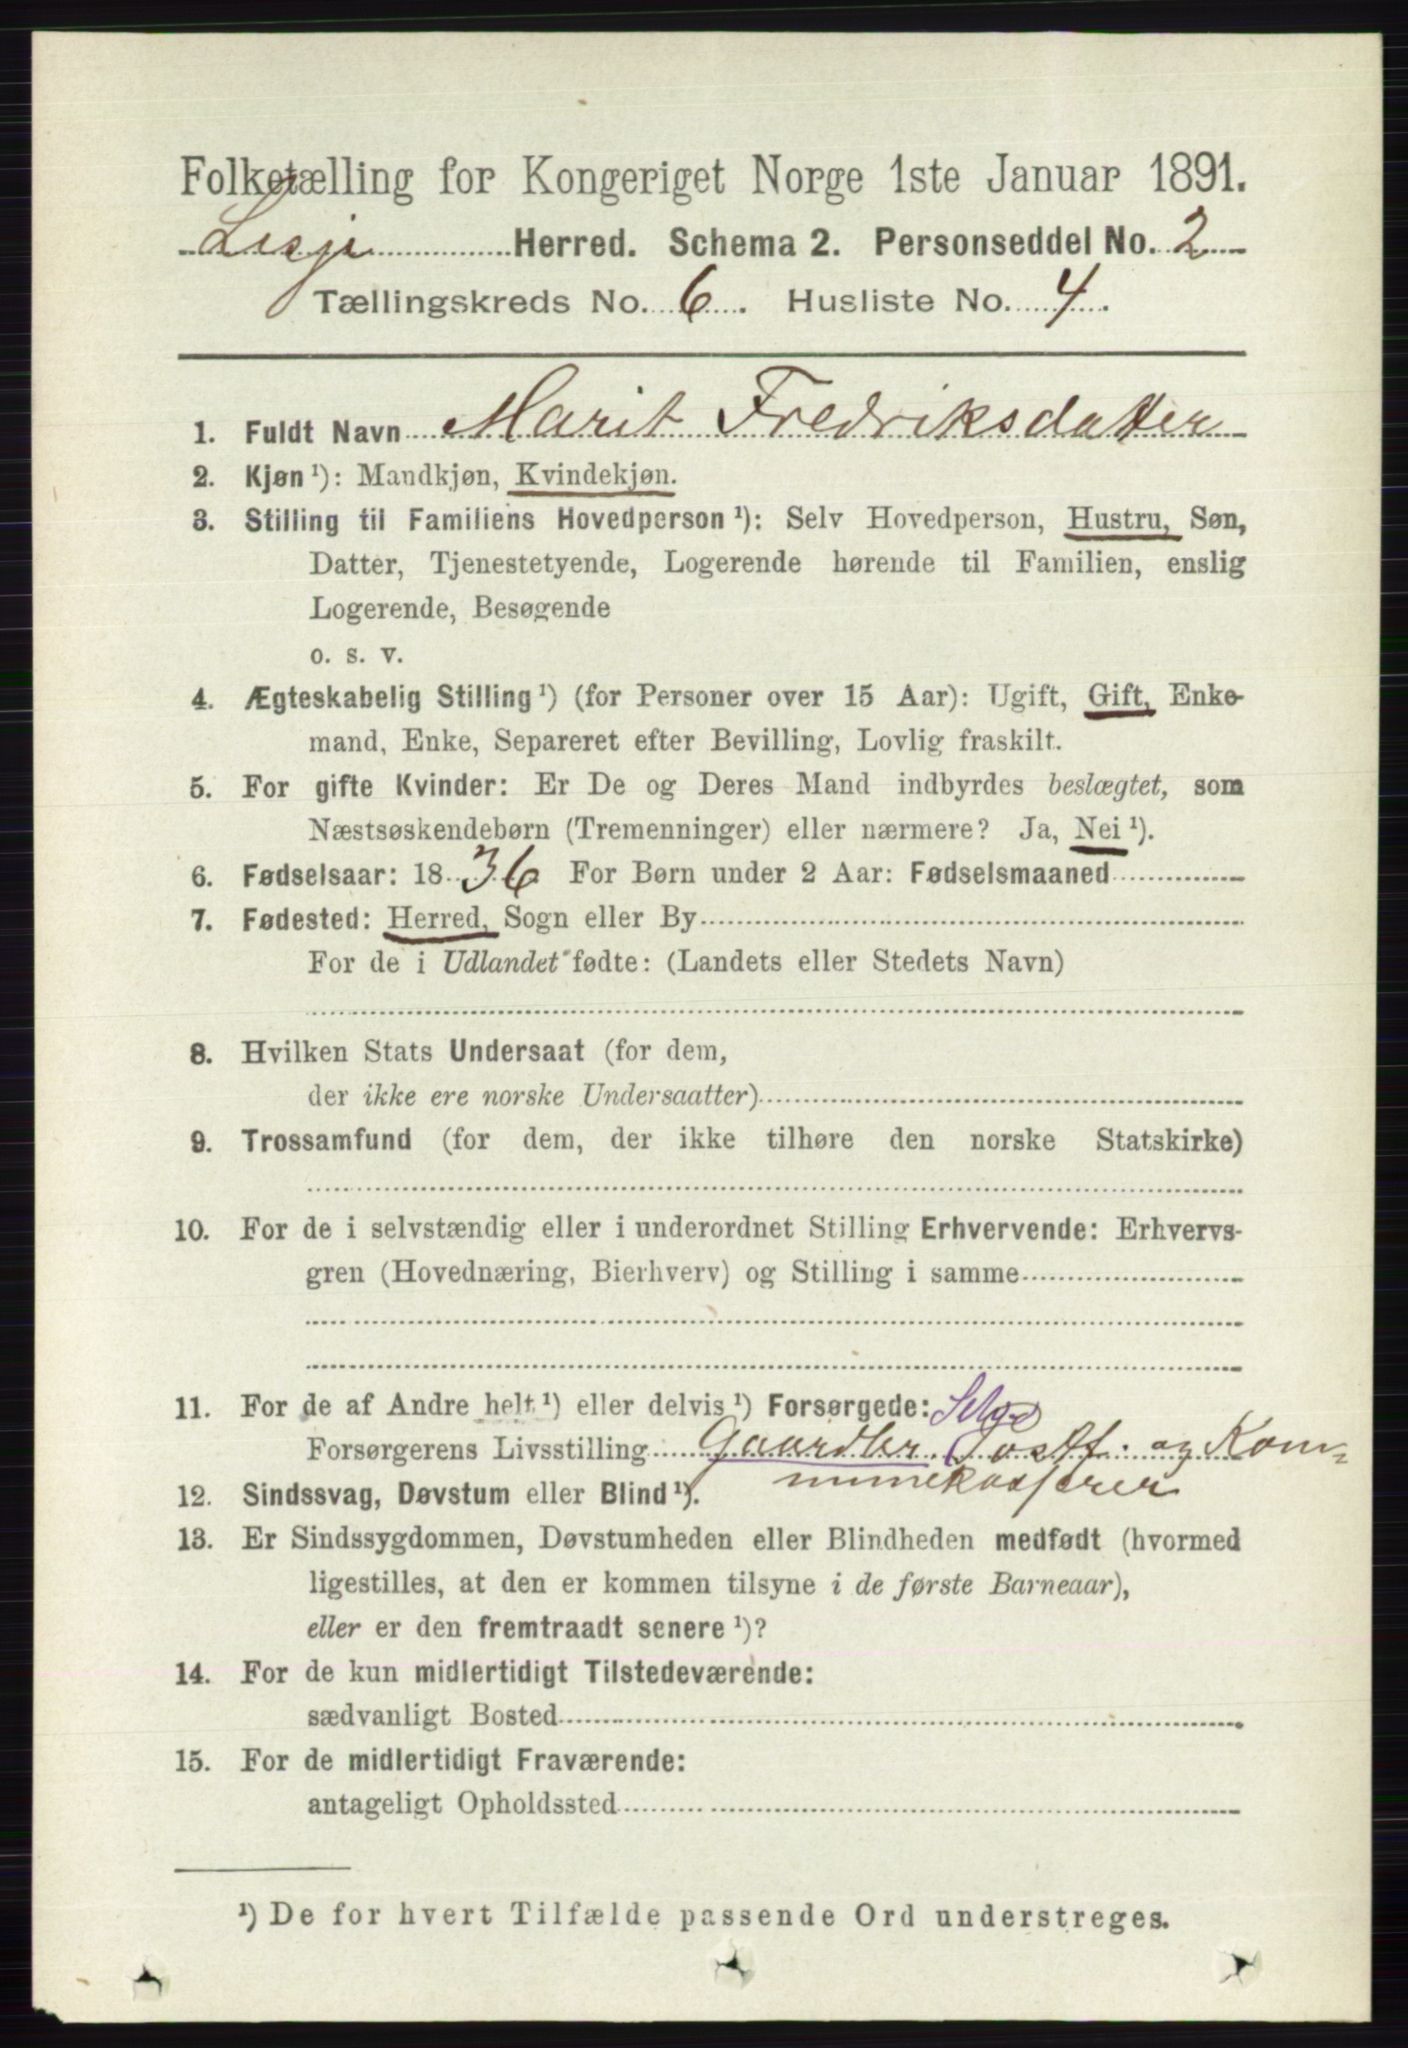 Folketælling for Kongeriget Norge 1ste Januar 1891.
Lesje Herred. Schema 2. Personseddel No. 2
Tællingskreds No. 6. Husliste No. 4.
1. Fuldt Navn Marit Fredriksdatter
2. Kjøn¹): Mandkjøn, Kvindekjøn.
3. Stilling til Familiens Hovedperson¹): Selv Hovedperson, Hustru, Søn,
Datter, Tjenestetyende, Logerende hørende til Familien, enslig
Logerende, Besøgende
o. s. v.
4. Ægteskabelig Stilling¹) (for Personer over 15 Aar): Ugift, Gift, Enke-
mand, Enke, Separeret efter Bevilling, Lovlig fraskilt.
5. For gifte Kvinder: Er De og Deres Mand indbyrdes beslægtet, som
Næstsøskendebørn (Tremenninger) eller nærmere? Ja, Nei¹).
6. Fødselsaar: 1836 For Børn under 2 Aar: Fødselsmaaned
7. Fødested: Herred, Sogn eller By
For de i Udlandet fødte: (Landets eller Stedets Navn)
8. Hvilken Stats Undersaat (for dem,
der ikke ere norske Undersaatter)
9. Trossamfund (for dem, der ikke tilhøre den norske Statskirke)
10. For de i selvstændig eller i underordnet Stilling Erhvervende: Erhvervs-
gren (Hovednæring, Bierhverv) og Stilling i samme
11. For de af Andre helt¹) eller delvis¹) Forsørgede: Selvej
Forsørgerens Livsstilling Gaardbr. Postf. og Kom-
munekasserer
12. Sindssvag, Døvstum eller Blind¹).
13. Er Sindssygdommen, Døvstumheden eller Blindheden medfødt (hvormed
ligestilles, at den er kommen tilsyne i de første Barneaar),
eller er den fremtraadt senere¹)?
14. For de kun midlertidigt Tilstedeværende:
sædvanligt Bosted
15. For de midlertidigt Fraværende:
antageligt Opholdssted
¹) De for hvert Tilfælde passende Ord understreges.